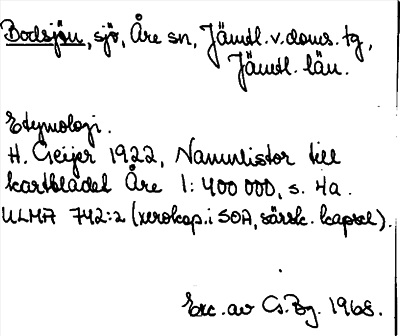 Bodsjön, sjö, Åre sn, Jämtl. v. doms. tg,
Jämtl. län.
Etymologi.
H. Geijer 1922, Namnlistor till
kartbladet Åre 1:400 000, s. 4a.
ULMA 742:2 (xerokop. i SOA, särsk. kapsel).
Exc. av Cs. By. 1968.